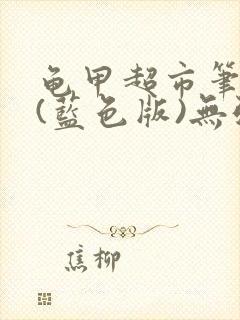 龟甲超市筆
(藍色版)無
焦柳